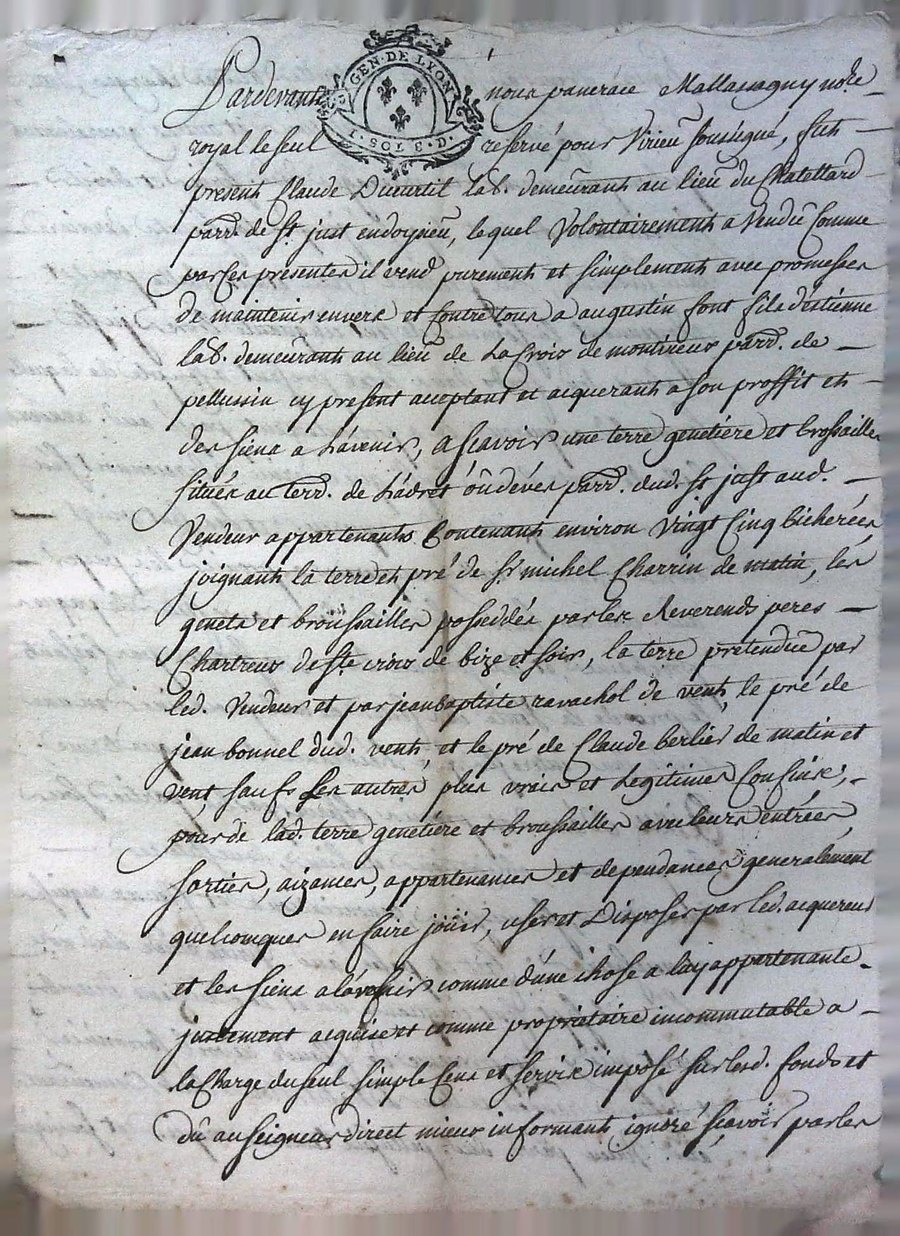 GEN. DE LYON
1. SOL 8. D.
Pardevant nous pancrace Mallassagny no.re
royal le seul reservé pour Virieu soussigné, fut
present Claude Ducurtil lab. demeurant au lieu du Chatellard
parr. de St just endoyzieu, lequel Volontairement a Vendu Comme
par Ces presentes il vend purement et simplement avec promesses
de maintenir envers et Contre tous a augustin font fils d'estienne
lab. demeurant au lieu de La Croix de montvieux parr. de
pellussin cy present aceptant et aiquerant a son proffit et
des siens a L'avenir, a scavoir une terre genetiére et brossailles
situés au terr. de parr. dud. St just aud.
Vendeur appartenants Contenants environ Vingt Cinq bicherées,
joignant la terre et pré de Sr michel Charrin de matin, les
genets et broussailles posseddés par lez Reverends peres
Chartreux de Ste croix de bize et soir, la terre pretenduë par
led. Vendeur et par jean baptiste ravachol de vent, le pré de
jean bonnel dud. vent, et le pré de Claude berlier de matin et
vent sauf ses autres plus vrais et Legitimes Confins;
pour de lad. terre genetiére et broussailles avec leurs entrées
sorties, aizances, appartenances et dependances generalement
quelconques en faire joüir, user et Disposer par led. acquereur
et les siens a l'avenir comme d'une chose a luy appartenante
justement acquise et comme proprietaire incommutable a
la Charge du seul simple Cens et servis imposé sur lesd. fonds et
dû au seigneur direct mieux informant ignoré scavoir par les